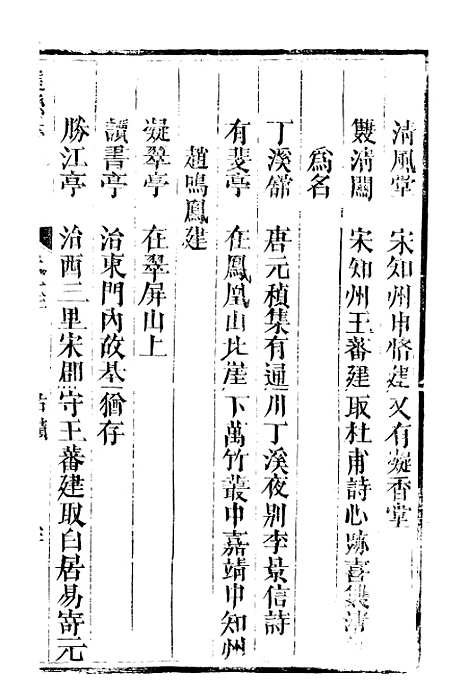 清風堂　宋知州申愹建又有凝香堂
雙清閣　宋知州王蕃建取杜甫詩心跡喜雙清
爲名
丁溪館　唐元稹集有通川丁溪夜別李景信詩
有斐亭　在鳳凰山北崖下萬竹叢中嘉靖中知州
趙鳴鳳建
凝翠亭　在翠屏山上
讀書亭　治東門內故基猶存
勝江亭　治西二里宋郡守王蕃建取白居易寄元
古蹟